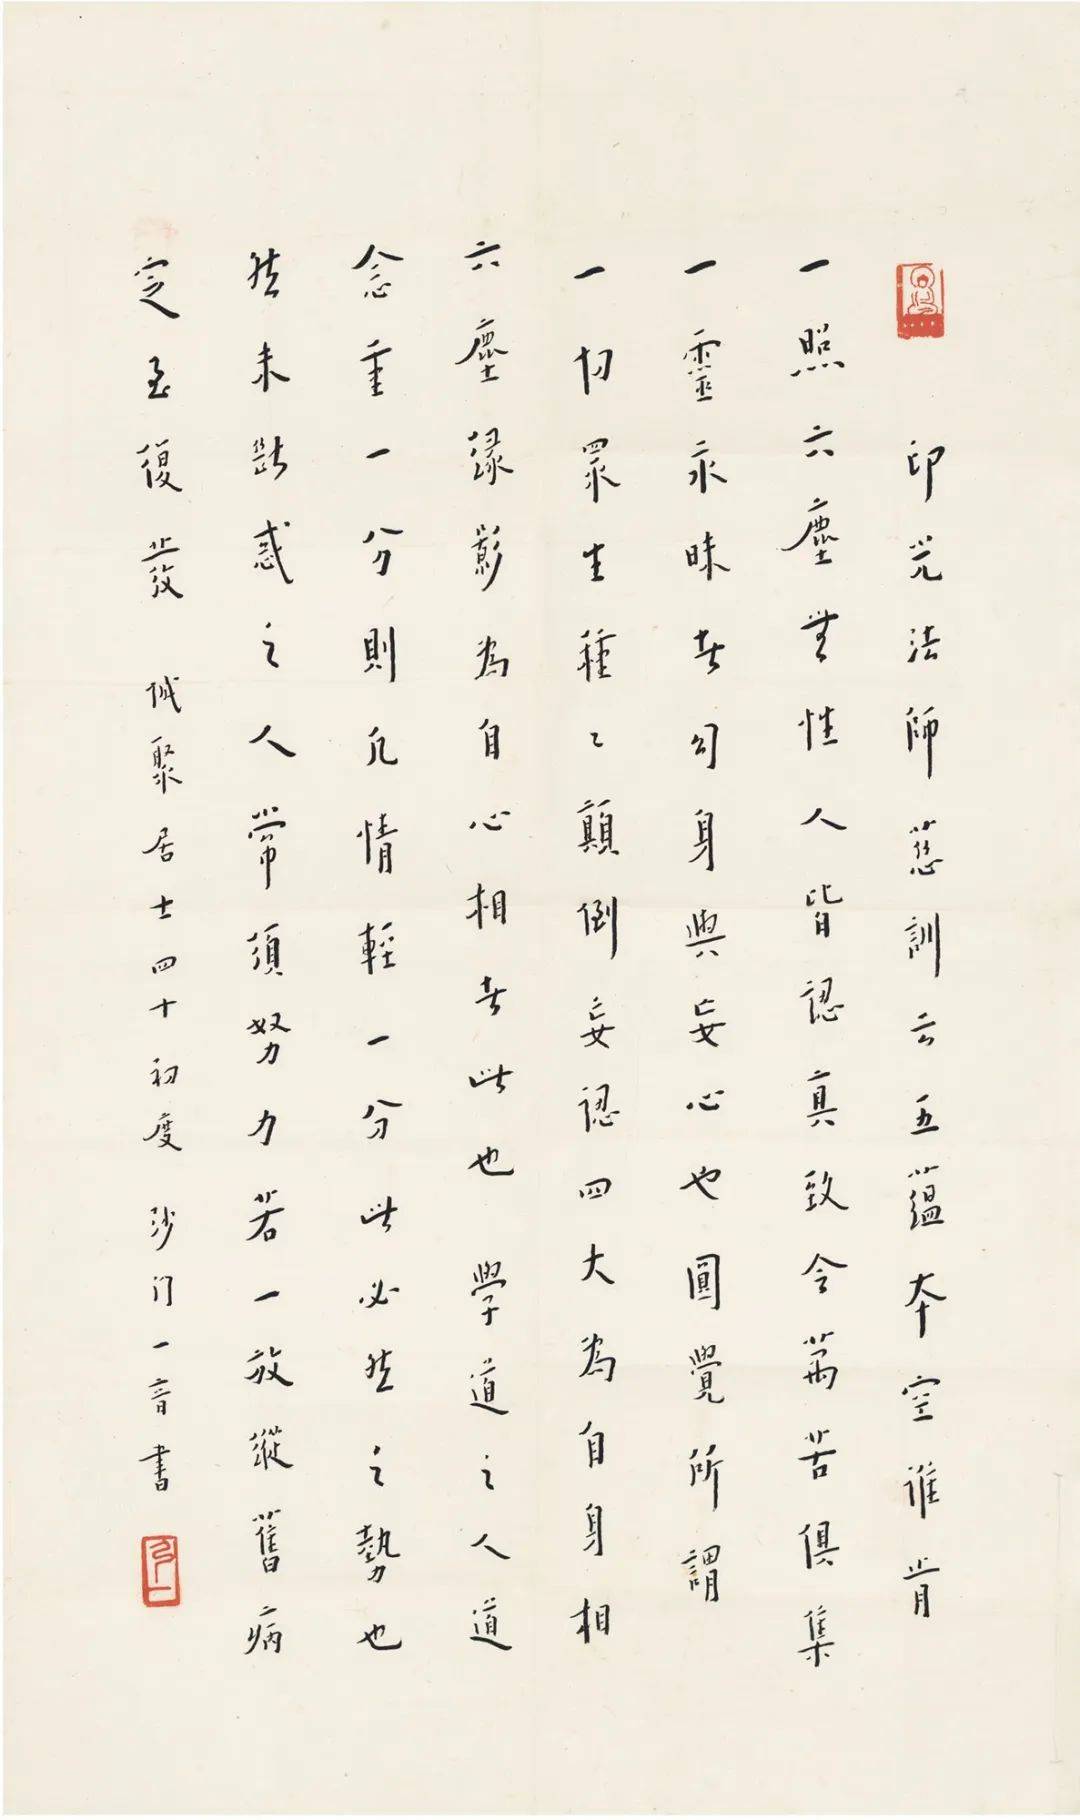 印光法師慈訓云五蘊本空誰肯
一照六塵無性人皆認真致令萬苦俱集
一靈永昧者幻身與妄心也圓覺所謂
一切眾生種〻顛倒妄認四大為自身相
六塵緣影為自心相者此也 學道之人道
念重一分則凡情輕一分此必然之勢也
然未斷惑之人常須努力若一放縱舊病
定至復發 城聚居士四十初度 沙门一音書
弘一